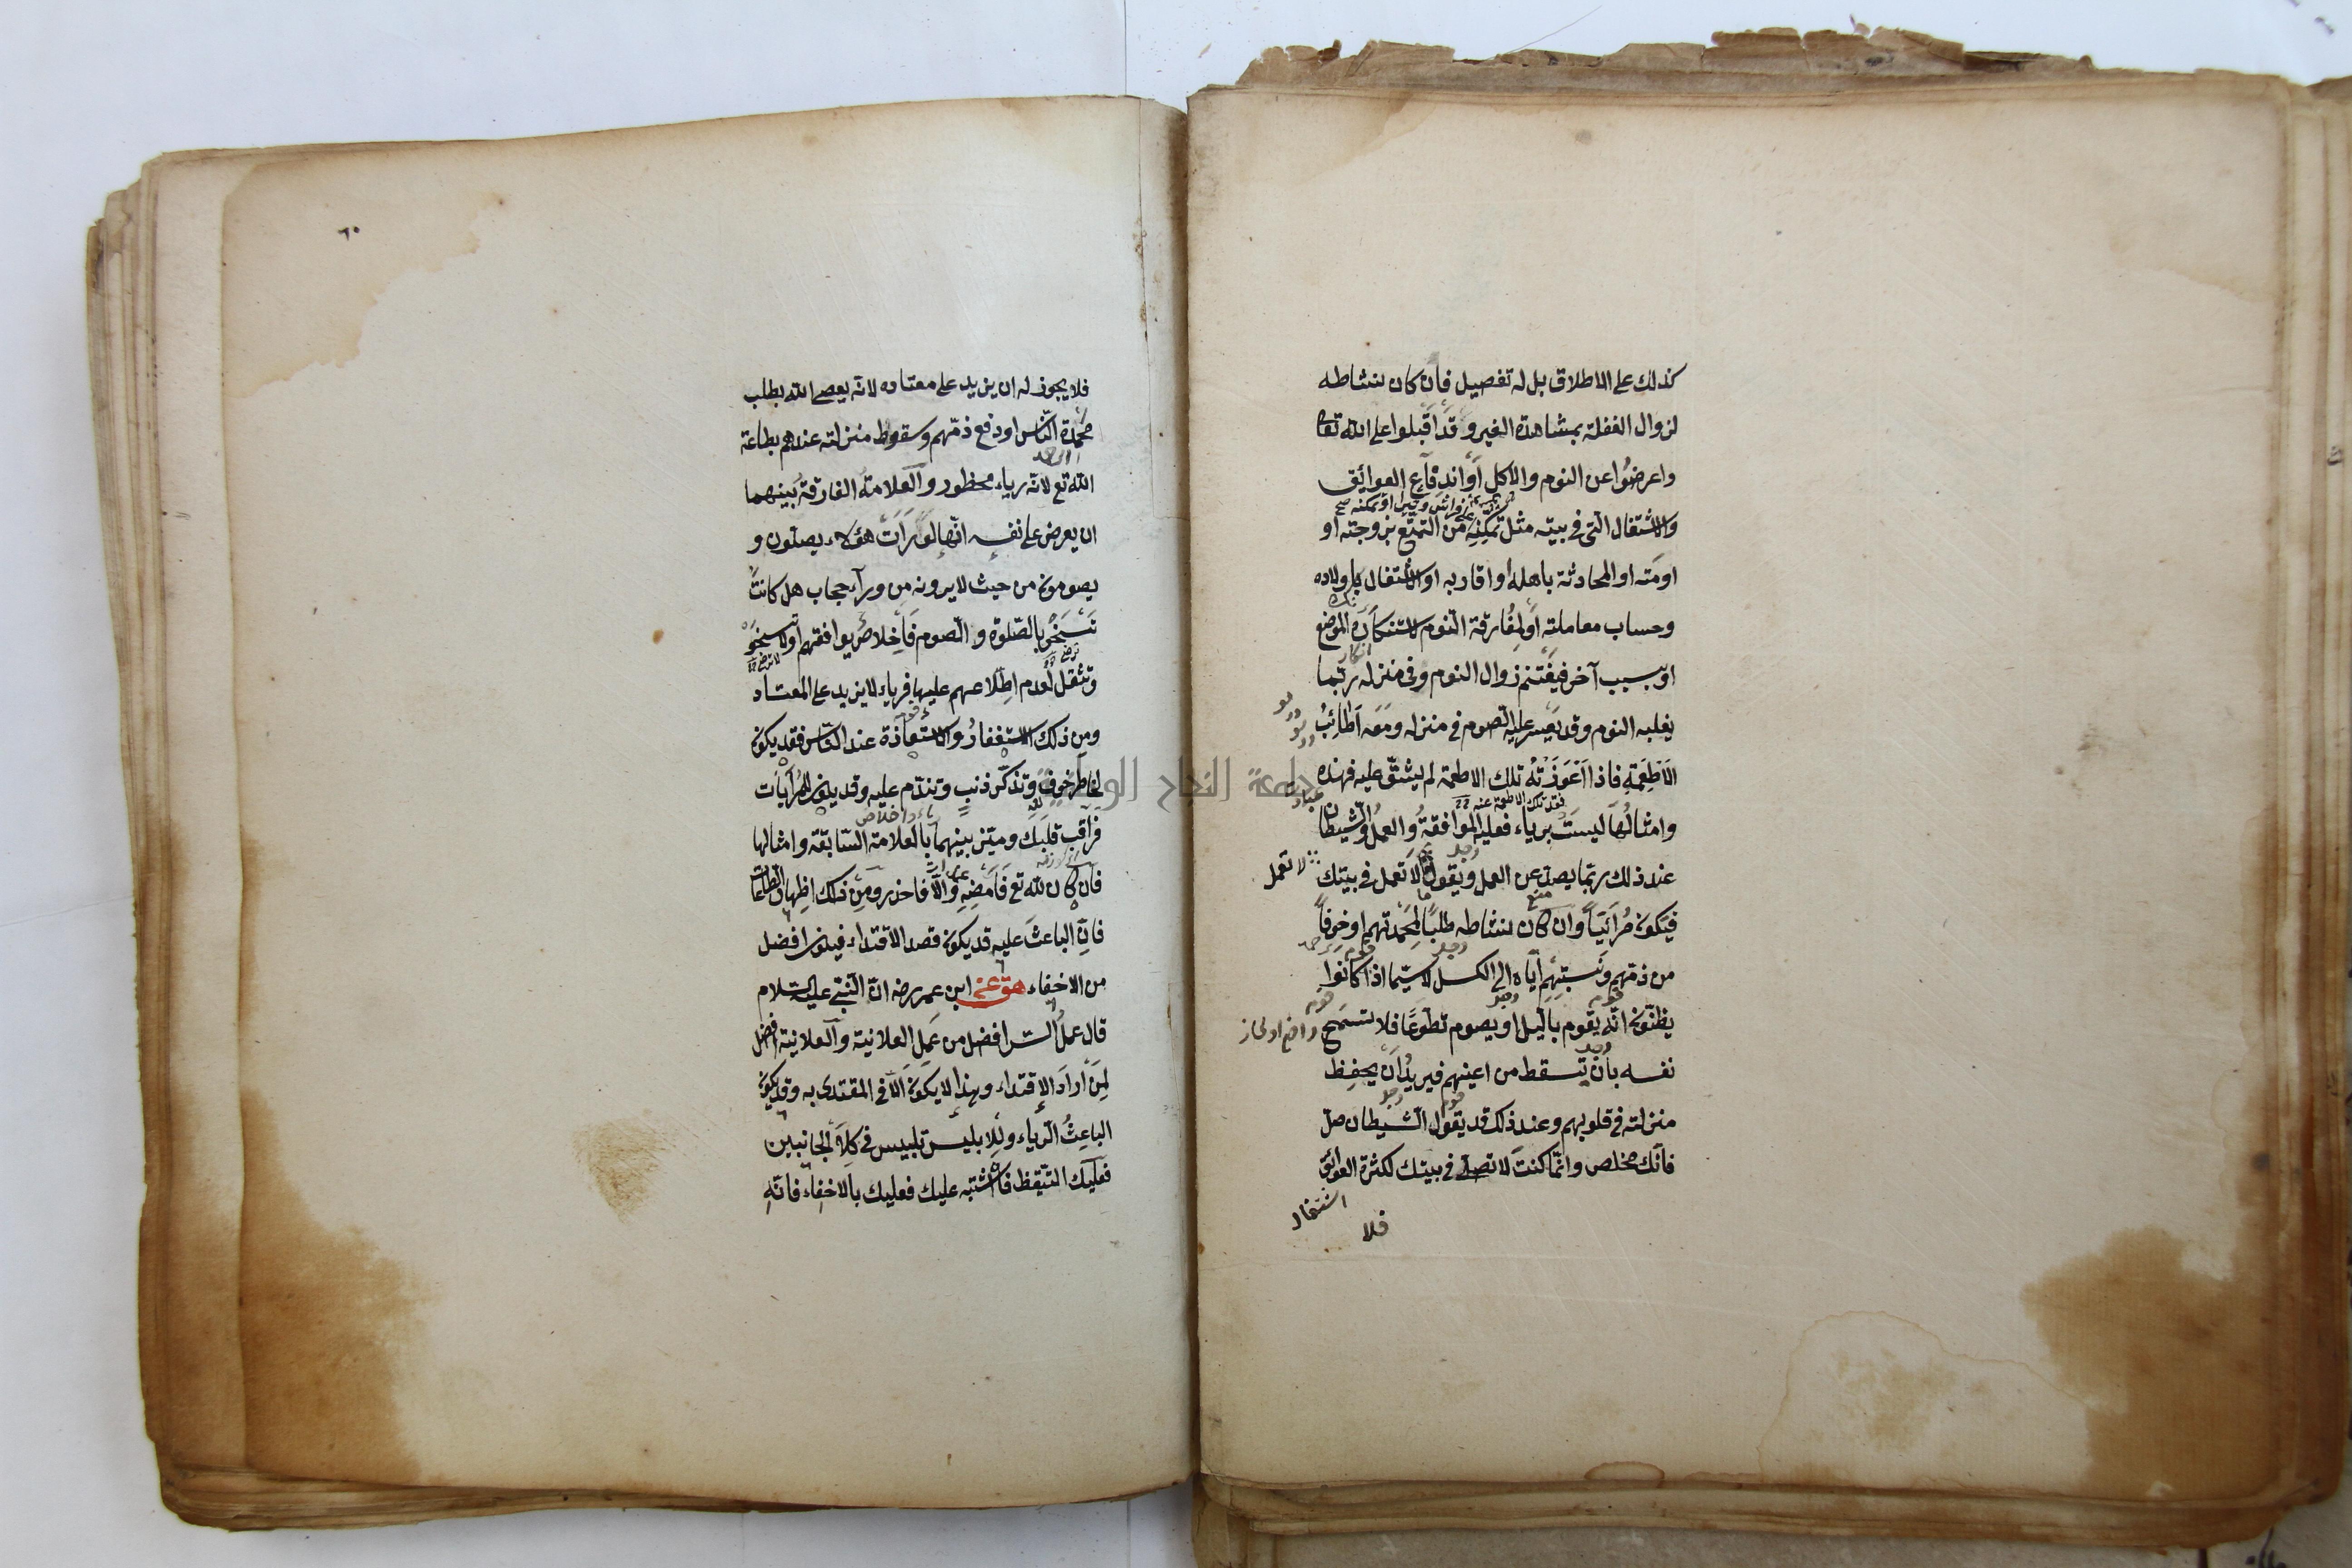 كذلك على الاطلاق بل له تفصيل فان كان نشاطه
لزوال الغفلة بمشاهدة الغير وقد اقبلوا على الله تعا
واعرضوا عن النوم والاكل او اندفاع العوائق
والاشتغال التى فى بيته مثل تمكنه من التمتع بزوجته او
او مته او المحادثة باهله او اقاربه او الاشتغال باولاده
وحساب معاملته او لمفارقة النوم لاستنكاره الموضع
او بسبب آخر فيغتنم زوال النوم وفى منزله ربما
يغلبه النوم وقد يعسر عليه الصوم فى منزله ومعه اطائب
الاطعمة فاذا اعوزته تلك الاطعمة لم يشق عليه فهذه
وامثالها ليست برياء فعليه الموافقة والعمل والشيطان
عند ذلك ربما يصد عن العمل ويقول لا تعمل فى بيتك
لا تعمل
فيكون مرائيا وان كان نشاطه طلبا لمحمدتهم او خوفا
من ذمهم ونسبتهم اياه الى الكسل لا سيما اذا كانوا
يظنون انه يقوم بالليل او يصوم تطوعا فلا تسمح
نفسه بان تسقط من اعينهم فيريد ان يحفظ
منزلته فى قلوبهم وعند ذلك قد يقول الشيطان صل
فانك مخلص وانما كنت لا تصلى فى بيتك لكثرة العوائق
فلا
٦٠
فلا يجوز له ان يزيد على معتاده لانه يعصى الله بطلب
محمدة الناس او دفع ذمهم وسقوط منزلته عندهم بطاعة
الله تع لانه رياء محظور والعلامة الفارقة بينهما
ان يعرض على نفسه انها لو رات هؤلاء يصلون و
يصومون من حيث لا يرونه من وراء حجاب هل كانت
تسخى بالصلوة والصوم فاخلاص يوافقهم او لا تسخو
وتثقل لعدم اطلاعهم عليها فرياء لا يزيد على المعتاد
ومن ذلك الاستغفار والاستعاذة عند الناس فقد يكون
لخاطر خوف وتذكر ذنب وتندم عليه وقد يكون للمرايات
فراقب قلبك وميز بينهما بالعلامة السابقة وامثالها
فان كان لله تع فامضه والا فاحذر ومن ذلك اظهار الطاعات
فان الباعث عليه قد يكون قصد الاقتداء فيكون افضل
من الاخفاء هق عن ابن عمر رضه ان النبى عليه السلام
قال عمل السر افضل من عمل العلانية والعلانية افضل
لمن اراد الاقتداء وهذا لا يكون الا فى المقتدى به وقد يكون
الباعث الرياء ولابليس تلبيس فى كلا الجانبين
فعليك التيقظ فان اشتبه عليك فعليك بالاخفاء فانه
جامعة النجاح الوطنية